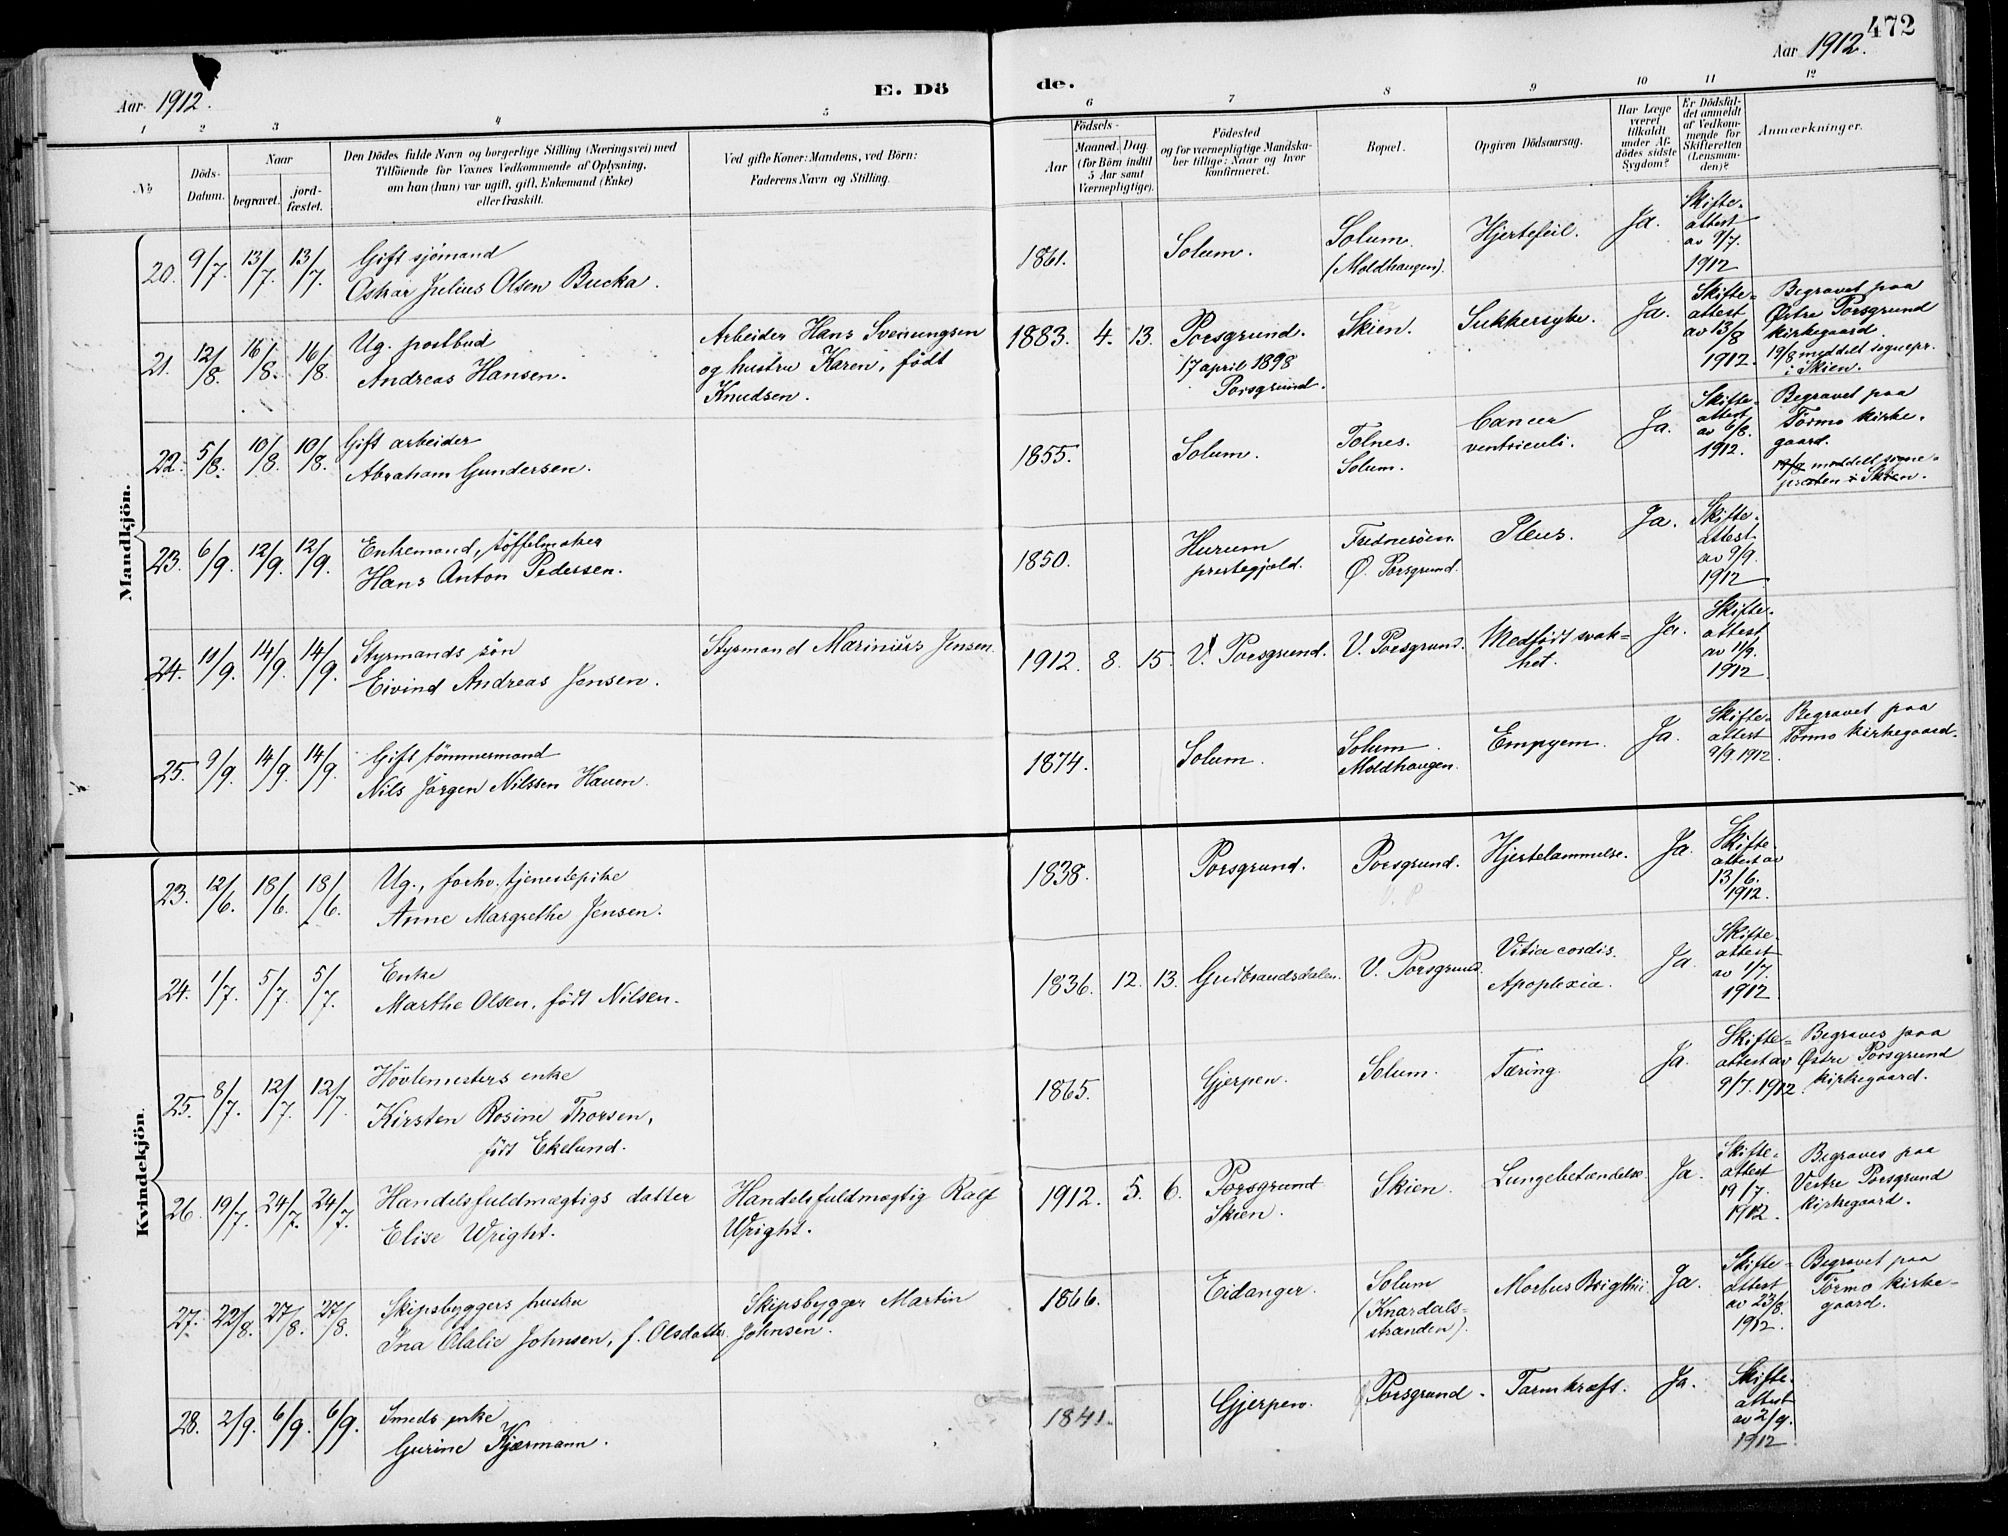 472
Aar 1912.
E. Dö
de.
Aar 1912.
1 2 3 4 5 6 7 8 9 10 11 12
No
Döds-Datum.
Naar
begravet.
jord-fæstet.
Den Dödes fulde Navn og borgerlige Stilling (Næringsvei) med
Tilföiende for Voxnes Vedkommende af Oplysning,
om han (hun) var ugift, gift, Enkemand (Enke)
eller fraskilt.
Ved gifte Koner: Mandens, ved Börn:
Faderens Navn og Stilling.
Födsels-
Aar
Maaned. Dag.
(for Börn indtil
5 Aar samt
Værnepligtige).
Födested
og for værnepligtige Mandska-
ber tillige: Naar og hvor
konfirmeret.
Bopæl.
Opgiven Dödsaarsag.
Har Læge
været
tilkaldt
under Af-
dödes sidste
Sygdom?
Er Dödsfal-
det anmeldt
af Vedkom-
mende for
Skifteretten
(Lensman-
den)?
Anmærkninger.
Mandkjön.
20. 9/7. 13/7. 13/7. Gift sjömand
Oskar Julius Olsen Bucka.
1861. Solum. Solum
(Moldhaugen). Hjertefeil. Ja. Skifte-
attest
av 9/7.
1912
21. 12/8. 16/8. 16/8. Ug. postbud
Andreas Hansen.
Arbeider Hans Sveinungsen
og hustru Karen, født
Knudsen.
1883. 4. 13. Porsgrund.
17 april 1898
Porsgrund.
Skien. Sukkersyke. Ja. Skifte-
attest
av 13/8
1912.
Begravet paa
Østre Porsgrund
kirkegaard
19/8 meddelt sognepr.
i Skien.
22. 5/8. 10/8. 10/8. Gift arbeider
Abraham Gundersen.
1855. Solum. Tolnes.
Solum. Cancer
ventriculi. Ja. Skifte-
attest
av 6/8.
1912.
Begravet paa
Tormo kirke-
gaard.
19/8 meddelt sogne-
presten i Skien.
23. 6/9. 12/9. 12/9. Enkemand, töffelmaker
Hans Anton Pedersen.
1850. Hurum
prestegjæld. Frednesøen.
Ø. Porsgrund. Pleus. Ja. Skifte-
attest
av 9/9.
1912
24. 11/9. 14/9. 14/9. Styrmands søn
Eivind Andreas Jensen.
Styrmand Marinius Jensen.
1912. 8. 15. V. Porsgrund. V. Porsgrund. Medfødt svak-
het. Ja. Skifte-
attest
av 11/9.
1912
25. 9/9. 14/9. 14/9. Gift tömmermand
Nils Jörgen Nilssen Hauen.
1874. Solum. Solum
Moldhaugen. Empyem. Ja. Skifte-
attest
9/9. 1912.
Begravet paa
Tormo kirkegaard.
Kvindekjön.
23. 12/6. 18/6. 18/6. Ug., forhv. tjenestepike
Anne Margrethe Jensen.
1838. Porsgrund. Porsgrund.
V. P Hjertelammelse. Ja. Skifte
attest av
13/6.
1912.
24. 1/7. 5/7. 5/7. Enke
Marthe Olsen, født Nilsen.
1836. 12. 13. Gudbrandsdalen. V. Porsgrund. Vitia cordis.
Apoplexia. Ja. Skifte-
attest
av 1/7.
1912
25. 8/7. 12/7. 12/7. Hövlemesters enke
Kirsten Rosine Thorsen,
født Ekelund.
1865. Gjerpen. Solum. Tæring. Ja. Skifte-
attest av
9/7. 1912.
Begraves paa
Østre Porsgrund
kirkegaard.
26. 19/7. 24/7. 24/7. Handelsfuldmægtigs datter
Elise Wright.
Handelsfuldmægtig Ralf
Wright.
1912. 5. 6. Porsgrund
Skien. Skien. Lungebetændelse Ja. Skifte-
attest
19/7.
1912.
Begraves paa
Vestre Porsgrund
kirkegaard.
27. 22/8. 27/8. 27/8. Skipsbyggers hustru
Ina Olalie Johnsen, f. Olsdatter
Skipsbygger Martin
Johnsen.
1866. Eidanger. Solum
(Knardals-
stranden). Morbus Brigthii Ja. Skifte-
attest
av 23/8.
1912.
Begravet paa
Tormo kirke-
gaard.
28. 2/9. 6/9. 6/9. Smeds enke
Gurine Kjærmann.
1841. Gjerpen. Porsgrund. Tarmkræft. Ja. Skifte-
attest
av 2/9.
1912